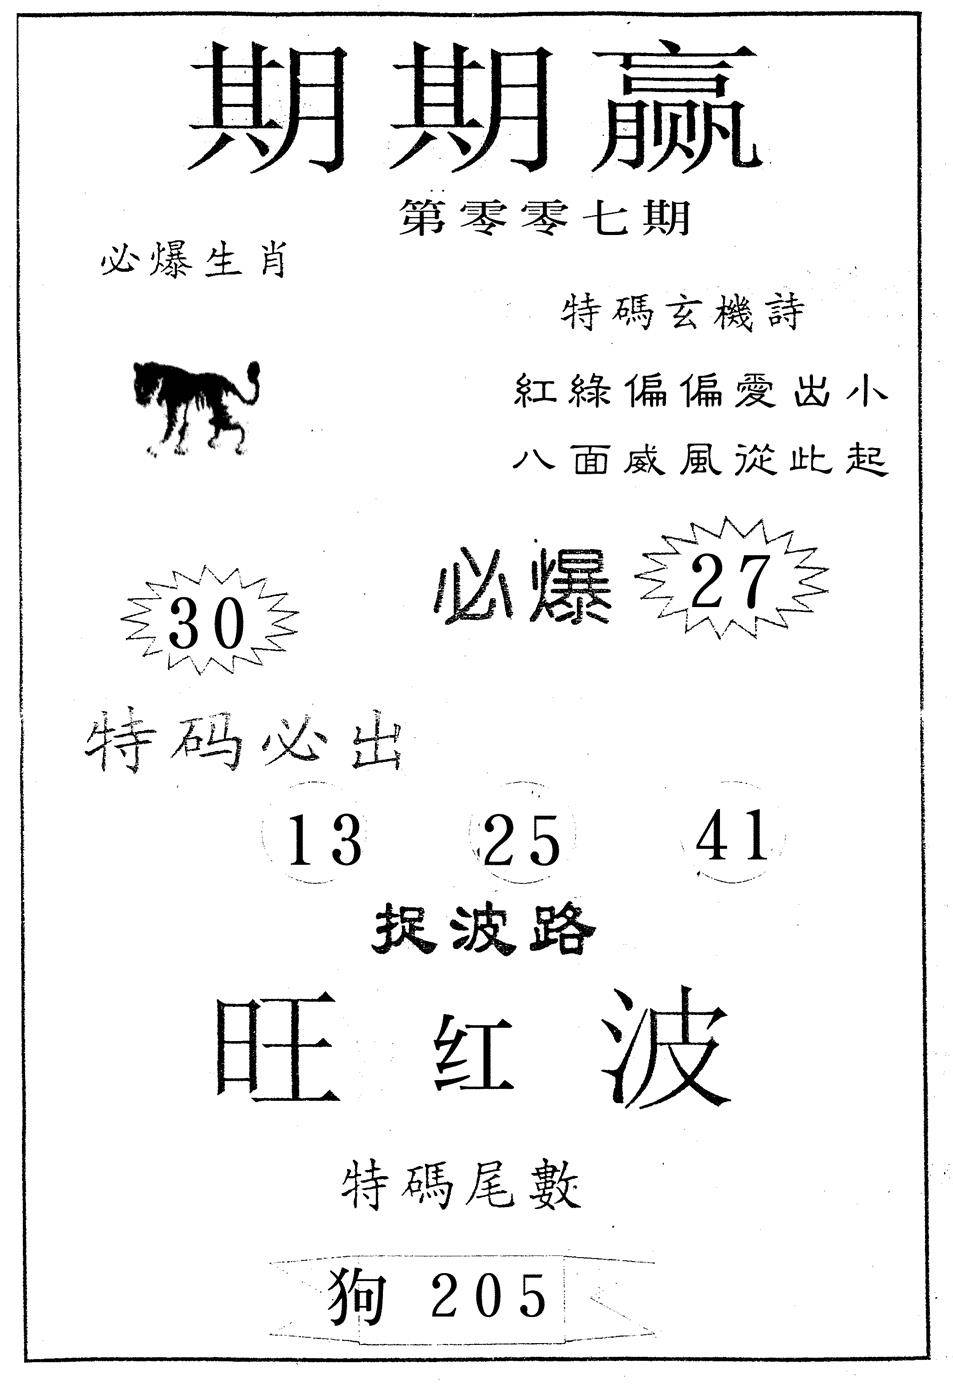 期期赢
第零零七期
必爆生肖
特碼玄機詩
紅綠偏偏愛出小
八面威風從此起
必爆 27
30
特码必出
13 25 41
捉波路
旺红波
特碼尾數
狗 205